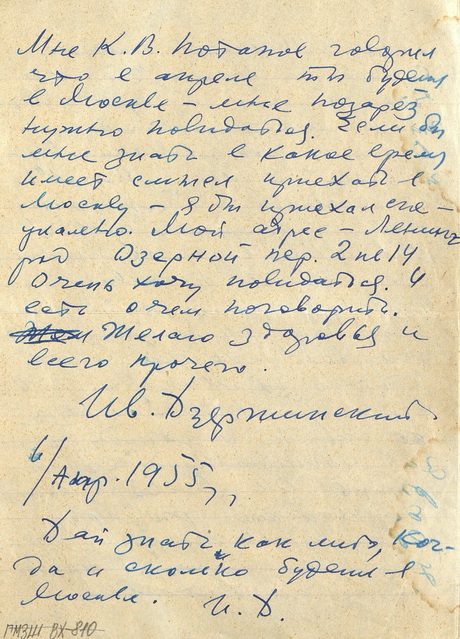 Мне К. В. Потапов говорил
что в апреле ты будешь
в Москве – мне позарез
нужно повидаться. Если бы
мне знать в какое время
имеет смысл приехать в
Москву – я бы приехал спе-
циально. Мой адрес – Ленинг
рад Озерной пер. 2 кв 14
Очень хочу повидаться. И
есть о чем поговорить.
Желаю здоровья и
всего прочего.
Ив. Дзержинский.
6/Апр. 1955 г.
Дай знать как либо, ког-
да и сколько будешь в
Москве. И. Д.
ГМЗШ ВХ-810